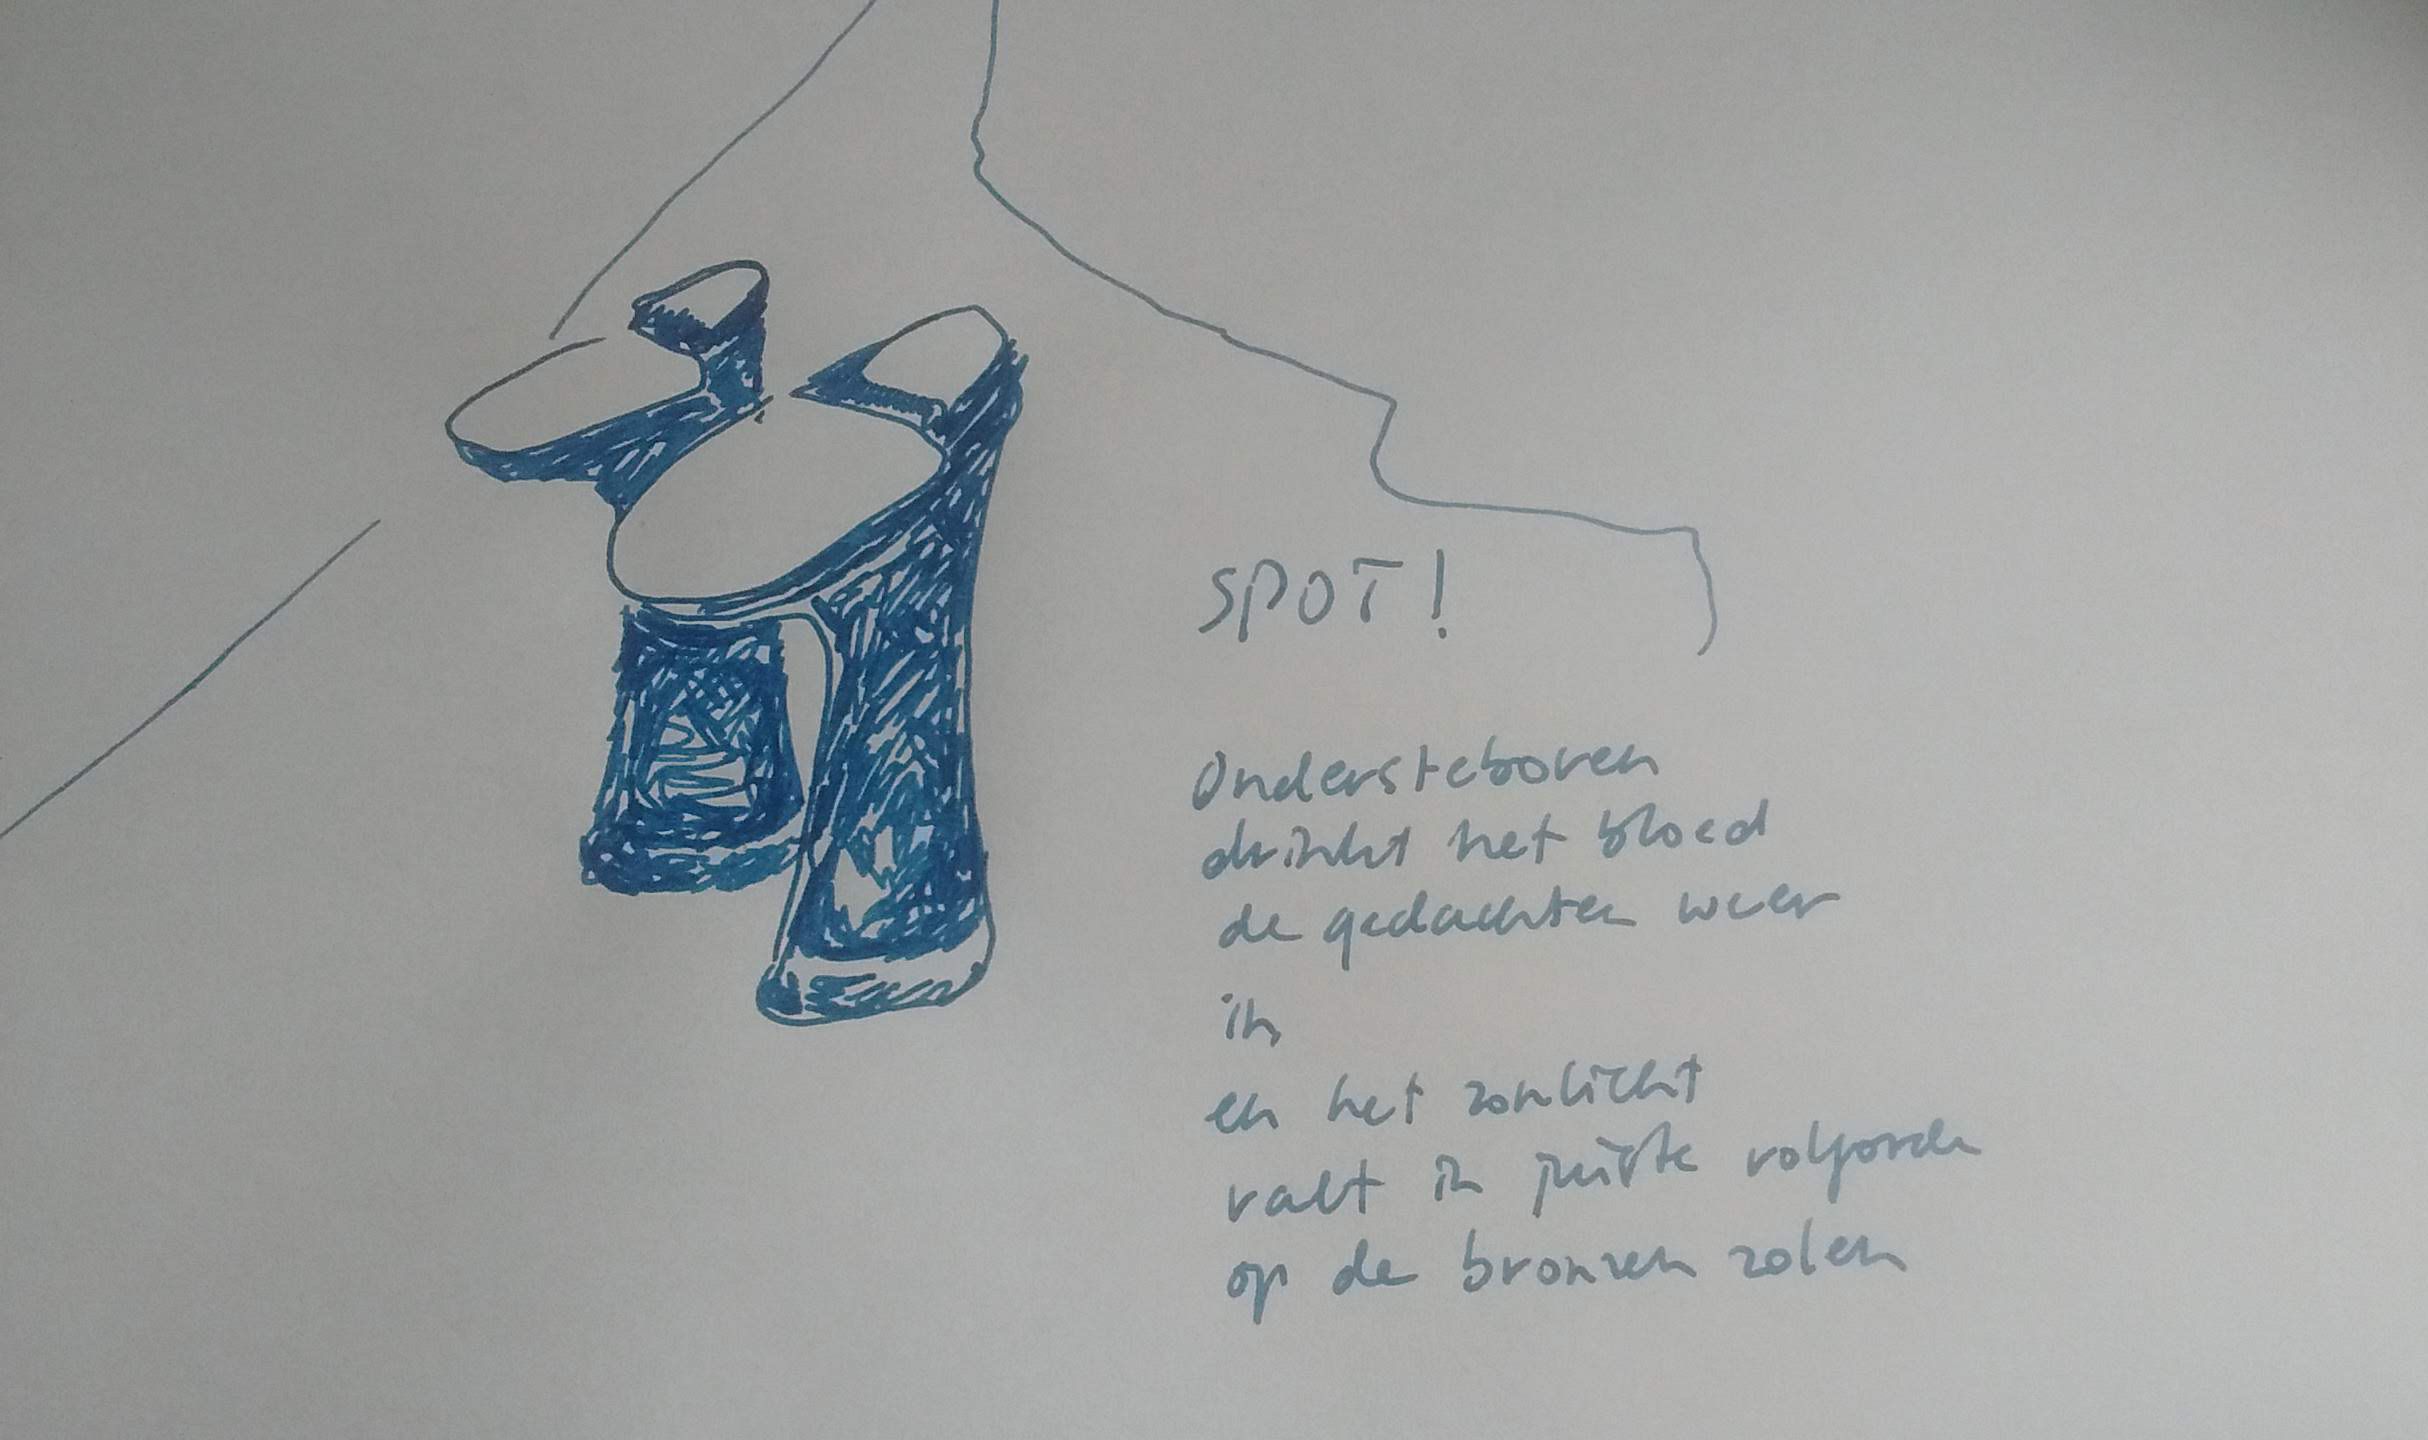 SPOT!
Ondersteboven
drinkt het bloed
de gedachten weer
in
en het zonlicht
valt in juiste volgorde
op de bronzen zolen